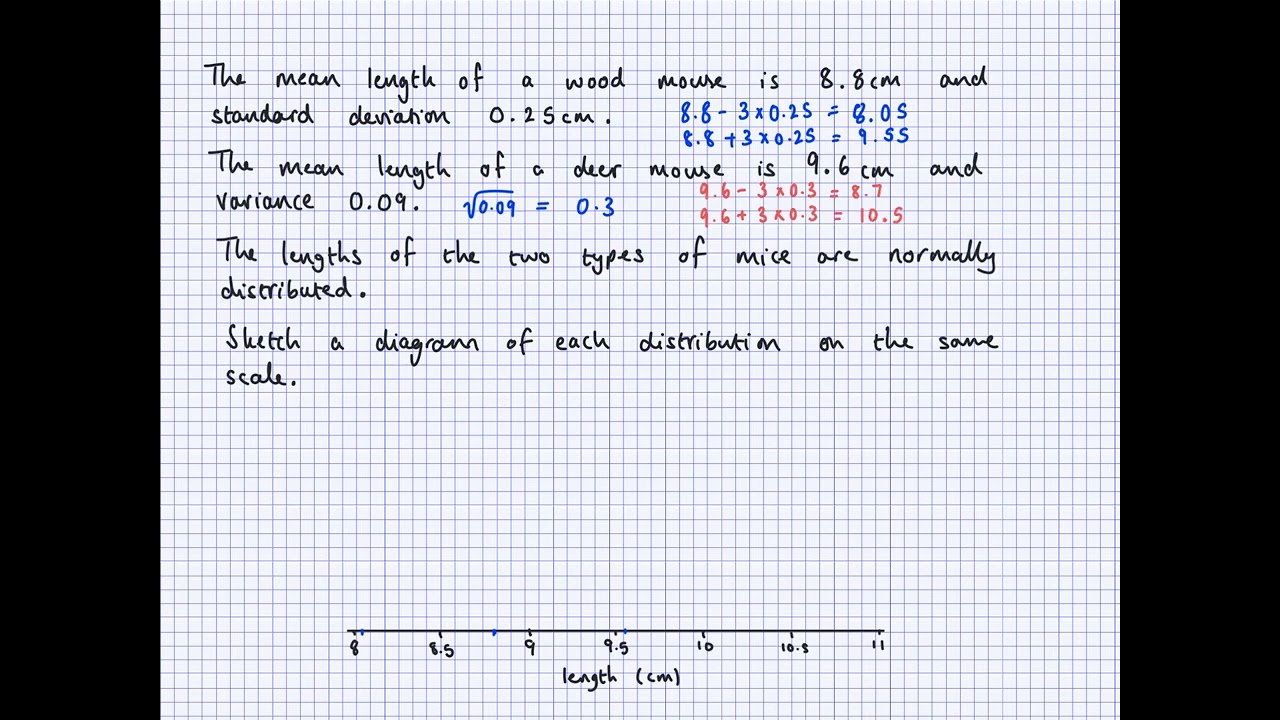 The mean length of a wood mouse is 8.8cm and
standard deviation 0.25cm. 8.8 - 3 x 0.25 = 8.05
8.8 + 3 x 0.25 = 9.55
The mean length of a deer mouse is 9.6 cm and
variance 0.09. √0.09 = 0.3 9.6 - 3 x 0.3 = 8.7
9.6 + 3 x 0.3 = 10.5
The lengths of the two types of mice are normally
distributed.
Sketch a diagram of each distribution on the same
scale.
8 8.5 9 9.5 10 10.5 11
length (cm)